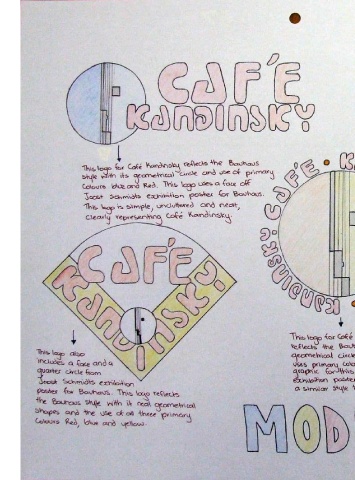 CAFÉ
KANDINSKY
This logo for Café Kandinsky reflects the Bauhaus
style with its geometrical circle and use of primary
Colours blue and Red. This logo uses a face off
Joost Schmidts exhibition poster for Bauhaus.
This logo is simple, uncluttered and neat,
clearly representing Café Kandinsky.
CAFÉ
KANDINSKY
This logo also
includes a face and a
quarter circle from
Joost Schmidts exhibition
poster for Bauhaus. This logo reflects
the Bauhaus style with it real geometrical
shapes and the use of all three primary
Colours Red, blue and yellow.
KANDINSKY CAFÉ
KANDINSKY
This logo for Café
reflects the
geometrical circle
uses primary
graphic for this
exhibition poster
a similar style
MOD